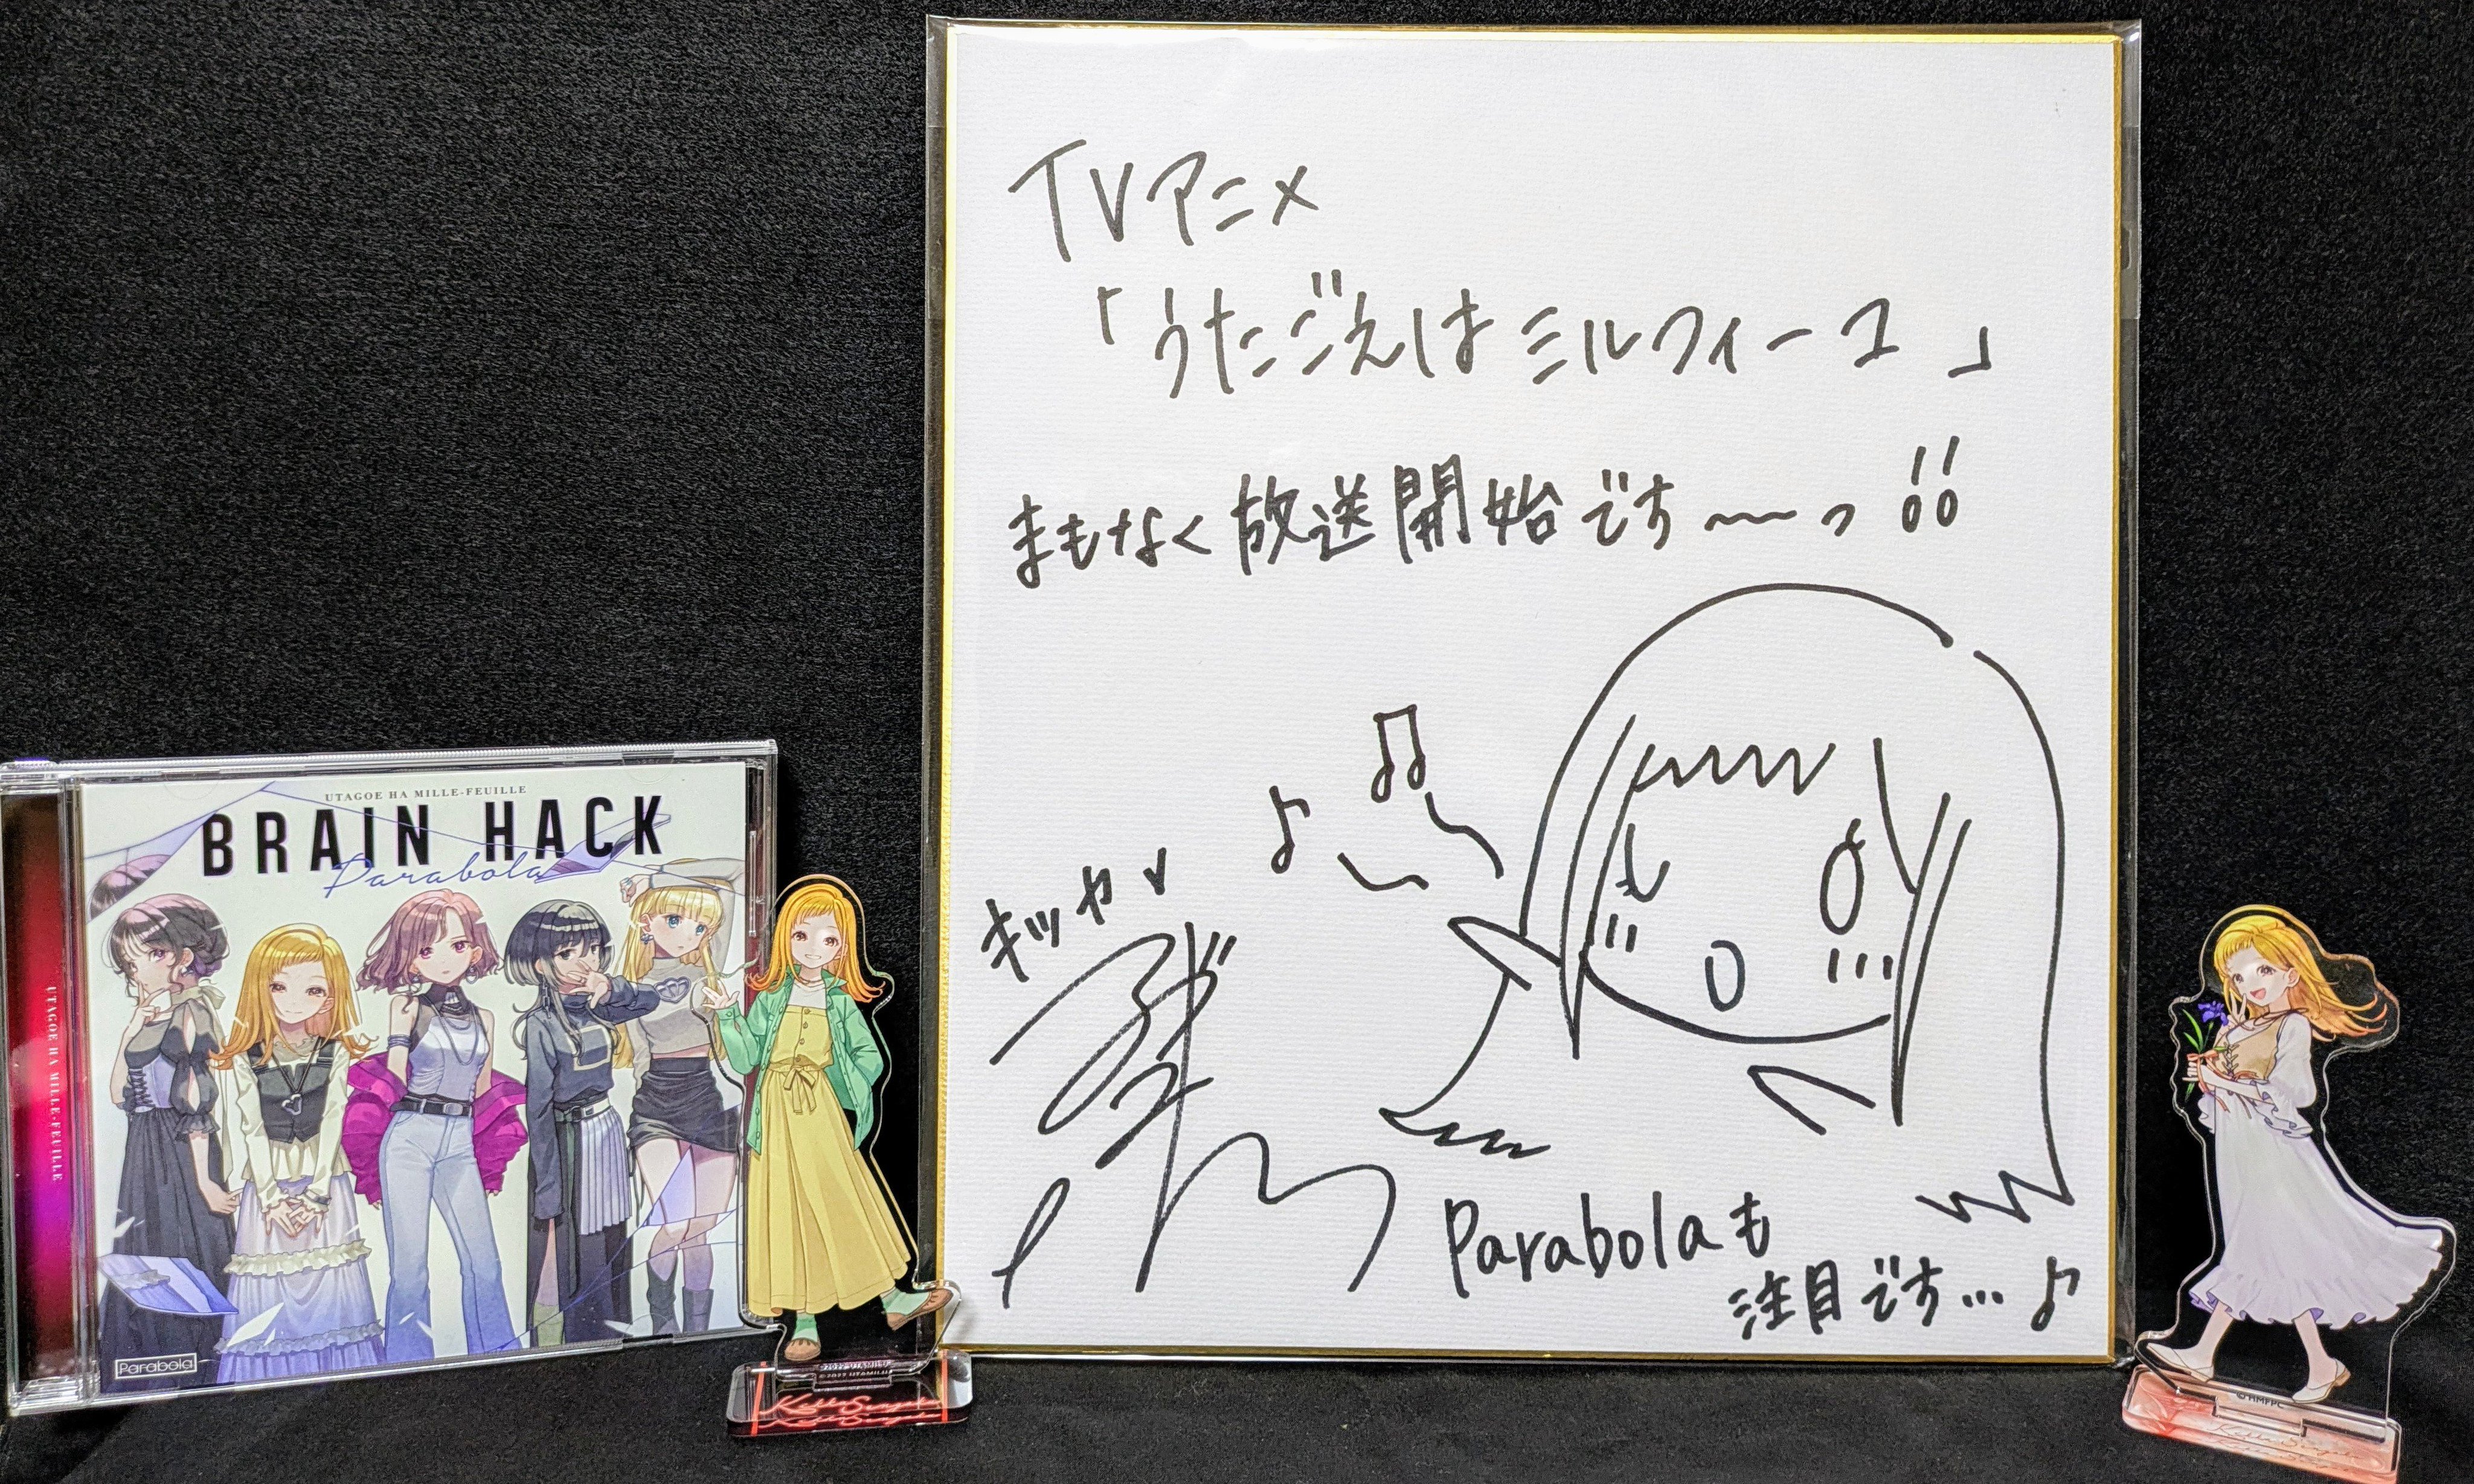 TVアニメ
「うたごえはミルフィーユ」
まもなく放送開始です〜っ!!
♪♫
Parabolaも
注目です…♪
UTAGOE HA MILLE-FEUILLE
BRAIN HACK
Parabola
Parabola
UTAGOE HA MILLE-FEUILLE
©2022 UTAMILU
©HMFPC